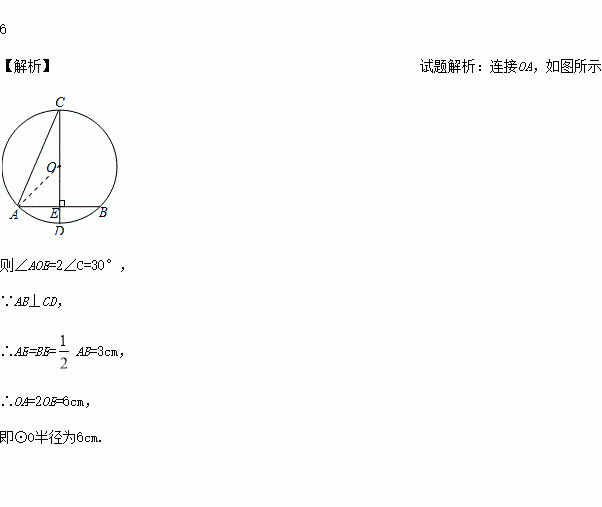 6
【解析】 试题解析：连接OA，如图所示
C
O
A E B
D
则∠AOE=2∠C=30°，
∵AB⊥CD，
∴AE=BE=1/2 AB=3cm，
∴OA=2OE=6cm，
即⊙O半径为6cm.